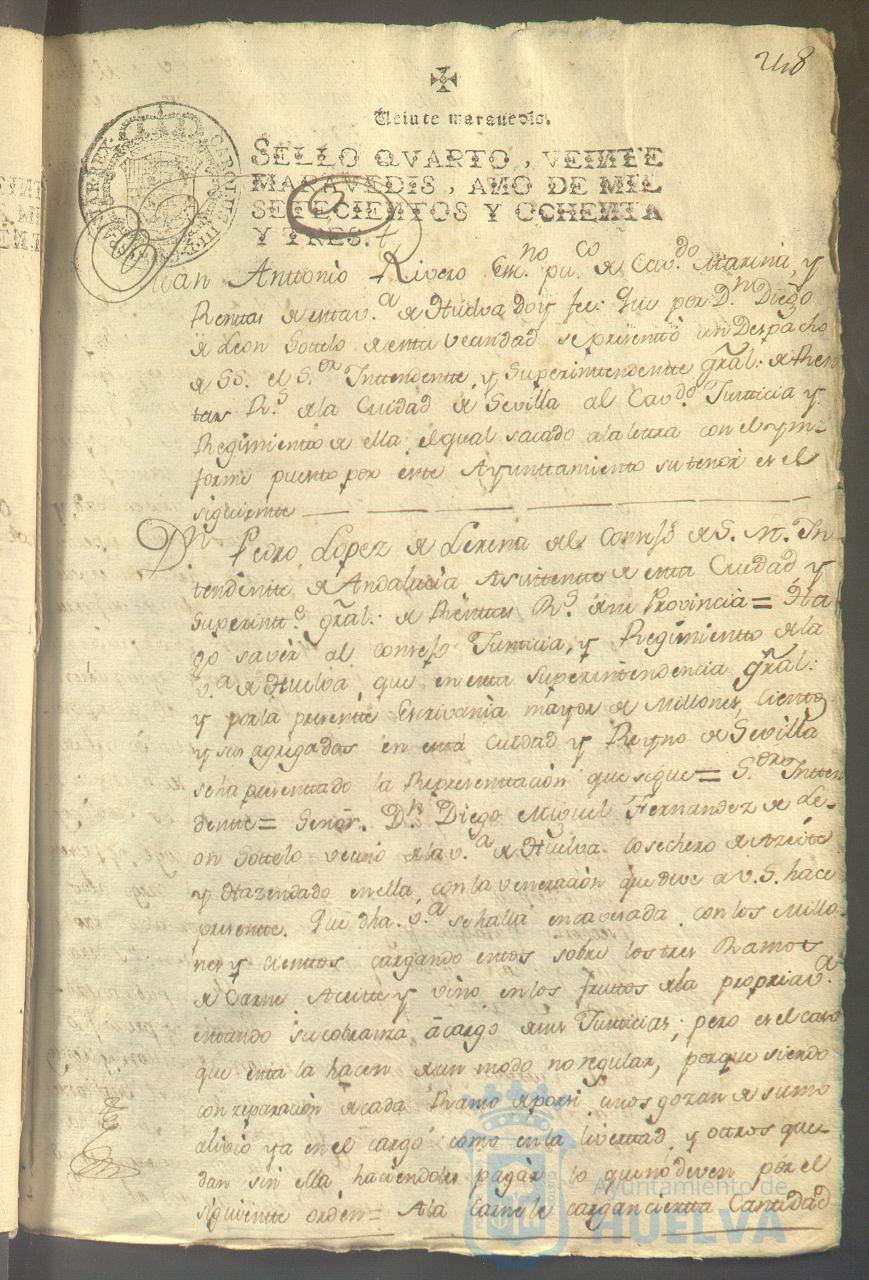 248
Veinte maravedis.
SELLO QVARTO, VEINTE
MARAVEDIS, AÑO DE MIL
SETECIENTOS Y OCHENTA
Y TRES.
CAROLUS III
Juan Anttonio Rivero Esc.no pu.co de Cav.do Marina, y
Renttas de esta v.a de Huelva Doy fee: Que por D.n Diego
de Leon Sottelo de esta vecindad se presentó un Despacho
de SS. el S.or Inttendentte, y Superinttendentte gral. de Ren
tas R.s de la Ciudad de Sevilla al Cav.do Justicia y
Regimientto de ella, el qual sacado a la letra con el ym-
forme puesto por este Ayunttamientto su tenor es el
siguiente
D.n Pedro Lopez de Lerena del Consejo de S. M. In
tendentte de Andalucia Asistente de esta Ciudad y
Superintt.e gral. de Renttas R.s de su Provincia = Ha
go saver al consejo Justicia, y Regimiento de la
v.a de Huelva, que en esta Superintendencia gral.
y por la presente Escrivania mayor de Millones, Cientos
y sus agregados en esta Ciudad y Reyno de Sevilla
se ha presentado la Representtacion que sigue = S.or Intten
dentte = Señor. D.n Diego Miguel Fernandez de Le-
on Sottelo vecino de la v.a de Huelva cosechero de Azeite
y Hazendado en ella, con la veneracion que deve a V.S. hace
presentte. Que dha. v.a se halla encavezada con los Millo
nes y cientos cargando estos sobre los tres Ramos
de Carne Aceitte y vino en los fruttos de la propria v.a
estando su cobranza a cargo de sus Justicias; pero es el caso
que esta la hacen de un modo no regular, porque siendo
con separacion de cada Ramo de por si unos gozan de sumo
alivio ya en el cargo como en la livertad y ottros que-
dan sin ella haciendoles pagar lo que no deven por el
siguiente orden = A la Carne le cargan cierta Cantidad
Ayuntamiento de
HUELVA